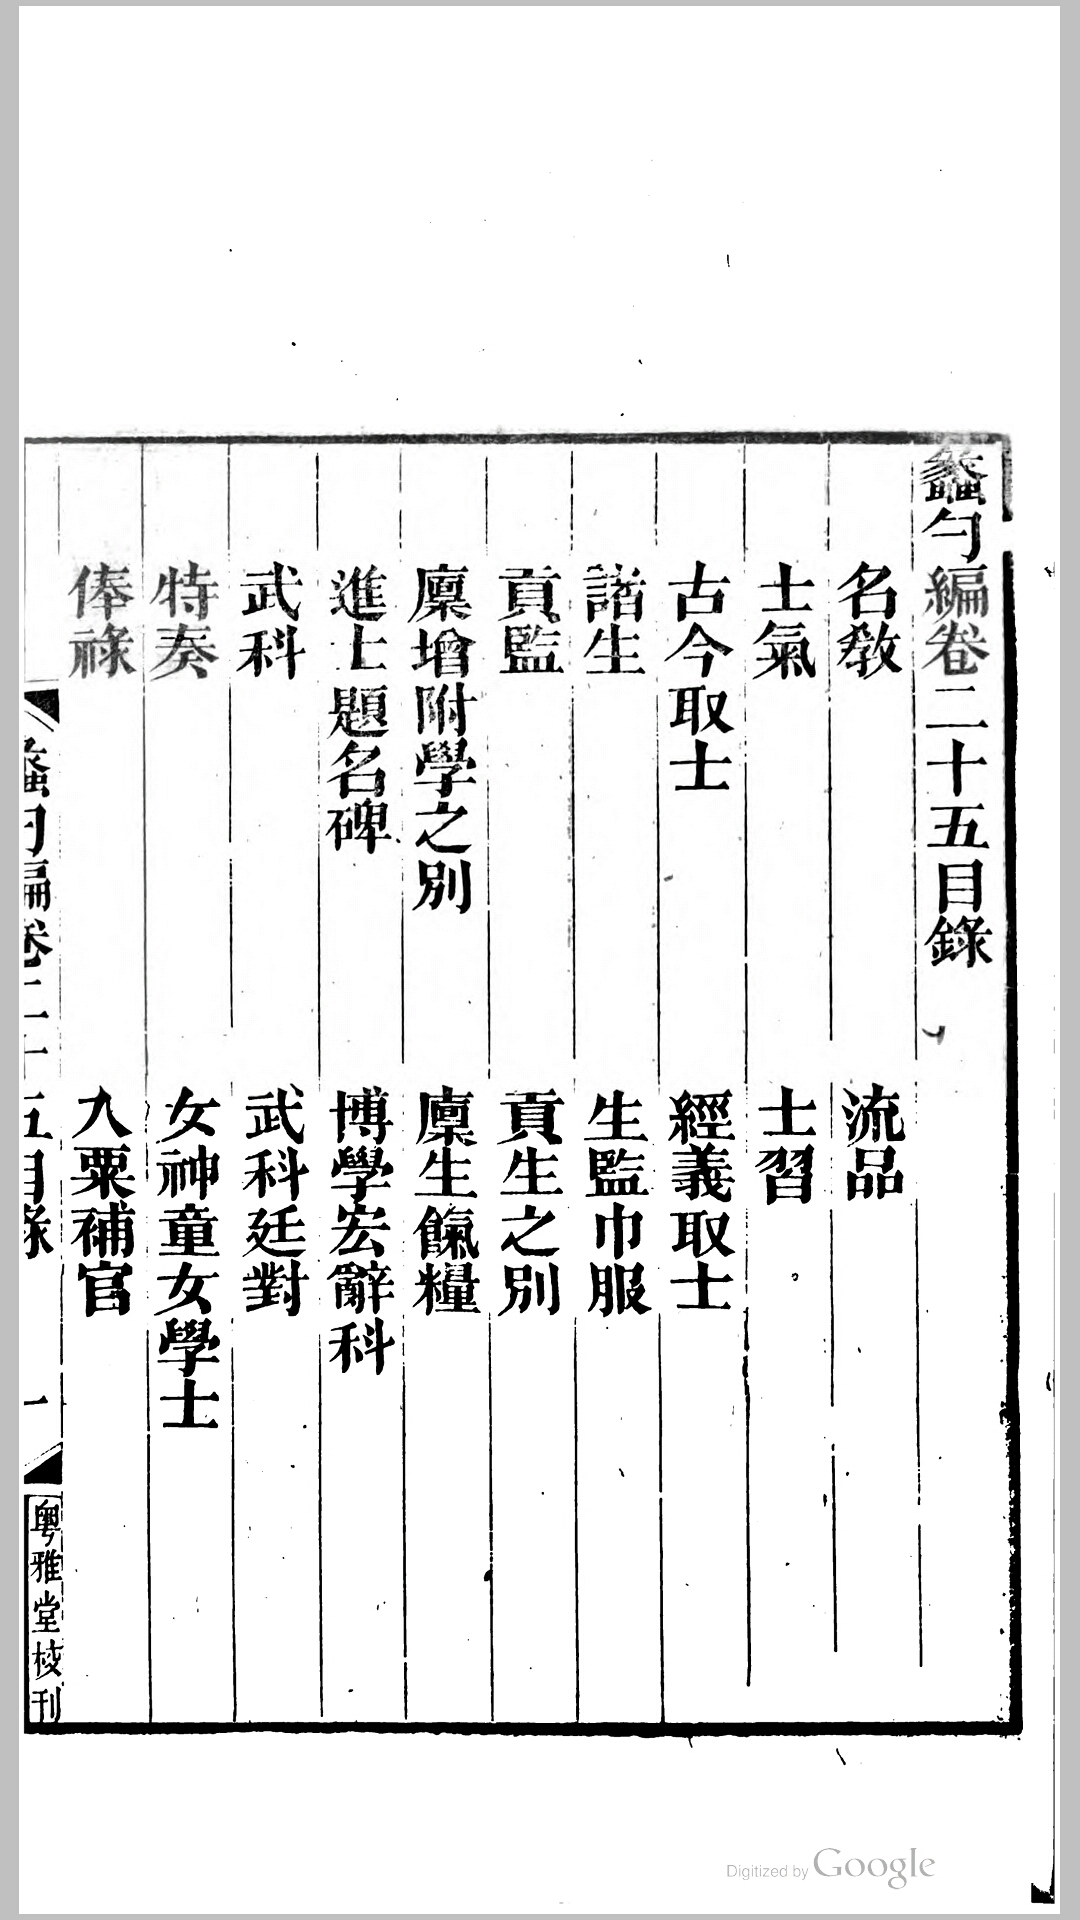 蠡勺編卷二十五目錄
名教　流品
士氣　士習
古今取士　經義取士
諸生　生監巾服
貢監　貢生之別
廩增附學之別　廩生餼糧
進士題名碑　博學宏辭科
武科　武科廷對
特奏　女神童女學士
俸祿　入粟補官
蠡勺編卷二十五目錄　一　粵雅堂校刊
Digitized by Google